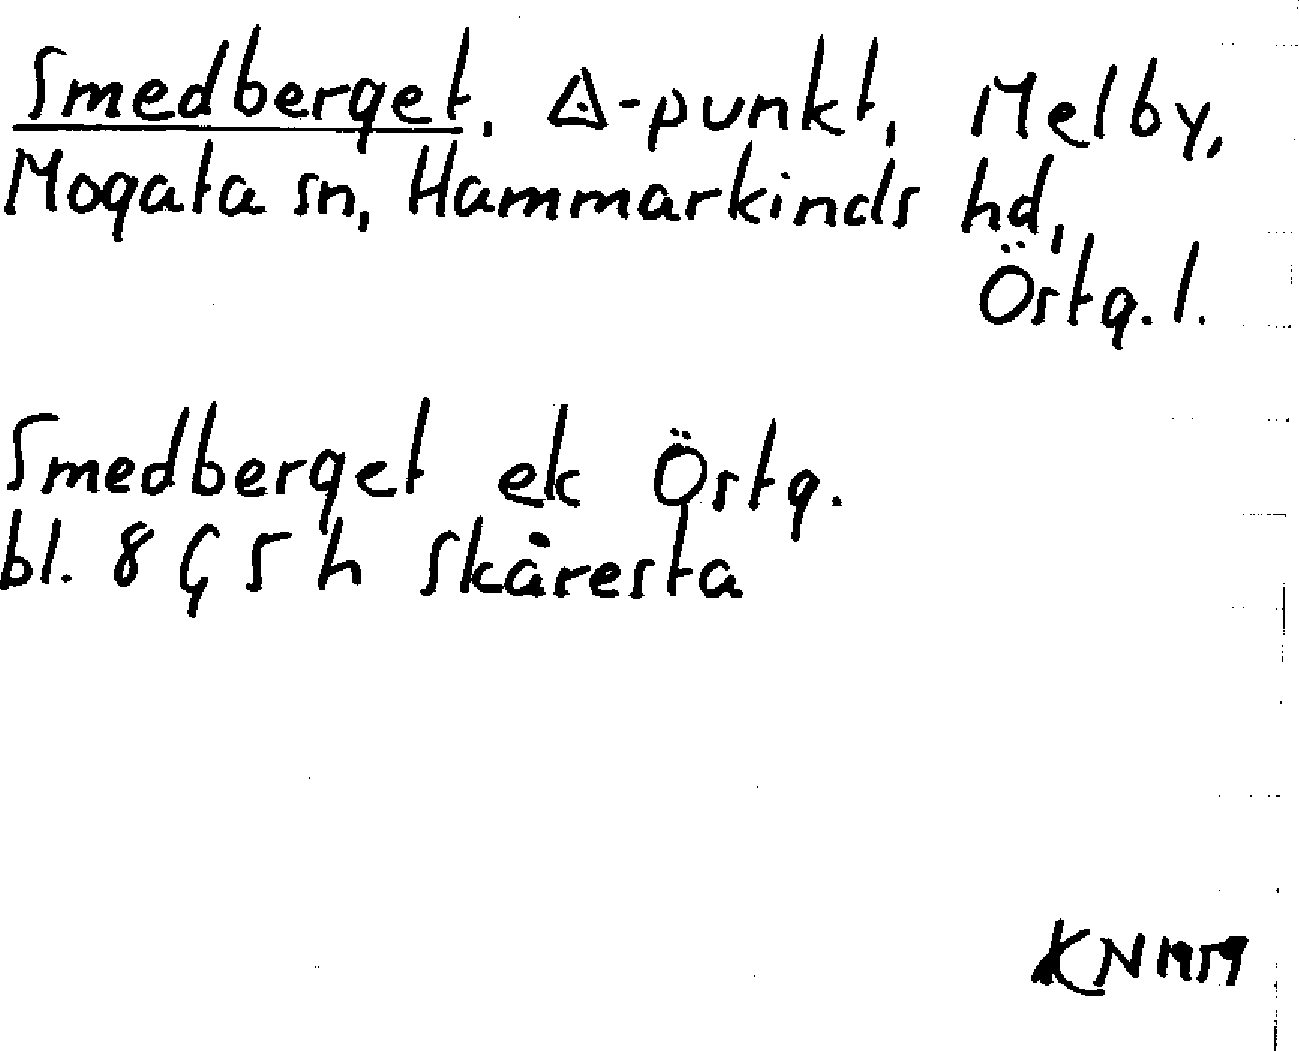 Smedberget, △-punkt, Melby,
Mogata sn, Hammarkinds hd,
Östg. l.
Smedberget ek Östg.
bl. 8 G 5 h Skåresta
KN 1959